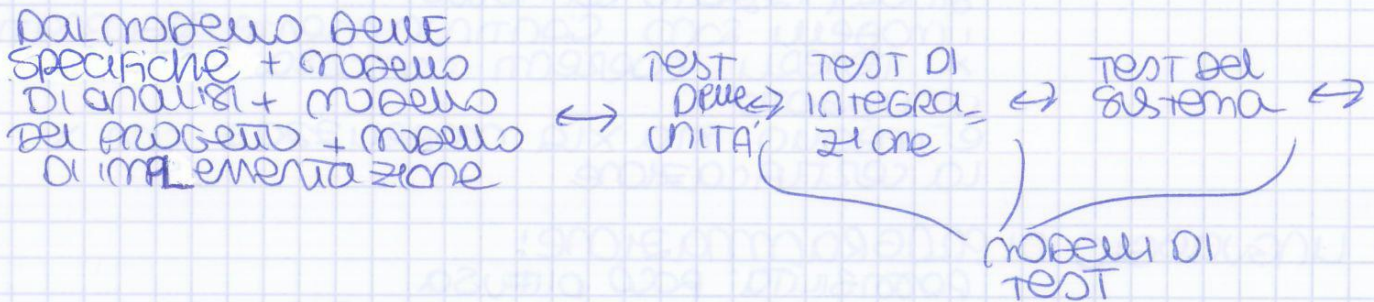 DAL MODELLO DELLE
SPECIFICHE + MODELLO
DI ANALISI + MODELLO
DEL PROGETTO + MODELLO
DI IMPLEMENTAZIONE
↔
TEST
DELLE
UNITÀ
↔
TEST DI
INTEGRA=
ZIONE
↔
TEST DEL
SISTEMA
↔
MODELLI DI
TEST